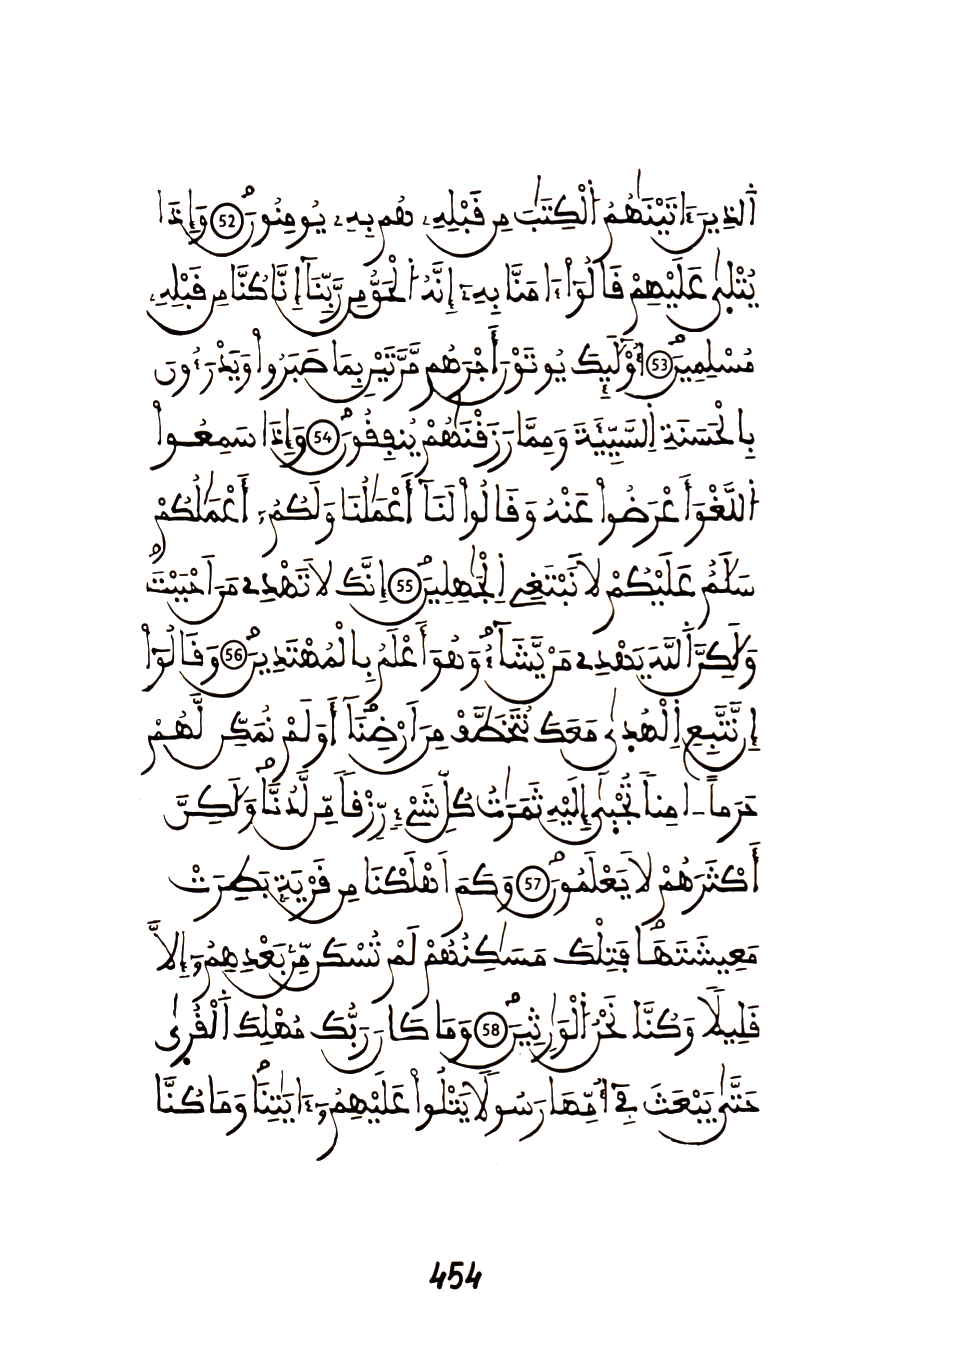 اَ۬لذِينَ ءَاتَيْنَٰهُمُ اُ۬لْكِتَٰبَ مِن قَبْلِهِۦ هُم بِهِۦ يُومِنُونَۖ 52 وَإِذَا
يُتْلٜىٰ عَلَيْهِمْ قَالُوٓاْ ءَامَنَّا بِهِۦٓ إِنَّهُ اُ۬لْحَقُّ مِن رَّبِّنَآ إِنَّا كُنَّا مِن قَبْلِهِۦ
مُسْلِمِينَۖ 53 أُوْلَٰٓئِكَ يُوتَوْنَ أَجْرَهُم مَّرَّتَيْنِ بِمَا صَبَرُواْ وَيَدْرَءُونَ
بِالْحَسَنَةِ اِ۬لسَّيِّئَةَ وَمِمَّا رَزَقْنَٰهُمْ يُنفِقُونَۖ 54 وَإِذَا سَمِعُواْ
اُ۬للَّغْوَ أَعْرَضُواْ عَنْهُ وَقَالُواْ لَنَآ أَعْمَٰلُنَا وَلَكُمُۥٓ أَعْمَٰلُكُمْ
سَلَٰمٌ عَلَيْكُمْ لَا نَبْتَغِے اِ۬لْجَٰهِلِينَۖ 55 إِنَّكَ لَا تَهْدِے مَنَ اَحْبَبْتَۖ
وَلَٰكِنَّ اَ۬للَّهَ يَهْدِے مَنْ يَّشَآءُۖ وَهُوَ أَعْلَمُ بِالْمُهْتَدِينَۖ 56 وَقَالُوٓاْ
إِن نَّتَّبِعِ اِ۬لْهُدٜىٰ مَعَكَ نُتَخَطَّفْ مِنَ اَرْضِنَآۖ أَوَلَمْ نُمَكِّن لَّهُمْ
حَرَماً اٰمِناً تُجْبٜىٰٓ إِلَيْهِ ثَمَرَٰتُ كُلِّ شَےْءٖ رِّزْقاً مِّن لَّدُنَّاۖ وَلَٰكِنَّ
أَكْثَرَهُمْ لَا يَعْلَمُونَۖ 57 وَكَمَ اَهْلَكْنَا مِن قَرْيَةِۢ بَطِرَتْ
مَعِيشَتَهَاۖ فَتِلْكَ مَسَٰكِنُهُمْ لَمْ تُسْكَن مِّنۢ بَعْدِهِمُۥٓ إِلَّا
قَلِيلاٗۖ وَكُنَّا نَحْنُ اُ۬لْوَٰرِثِينَۖ 58 وَمَا كَانَ رَبُّكَ مُهْلِكَ اَ۬لْقُرٜىٰ
حَتَّىٰ يَبْعَثَ فِےٓ أُمِّهَا رَسُولاٗ يَتْلُواْ عَلَيْهِمُۥٓ ءَايَٰتِنَاۖ وَمَا كُنَّا
454